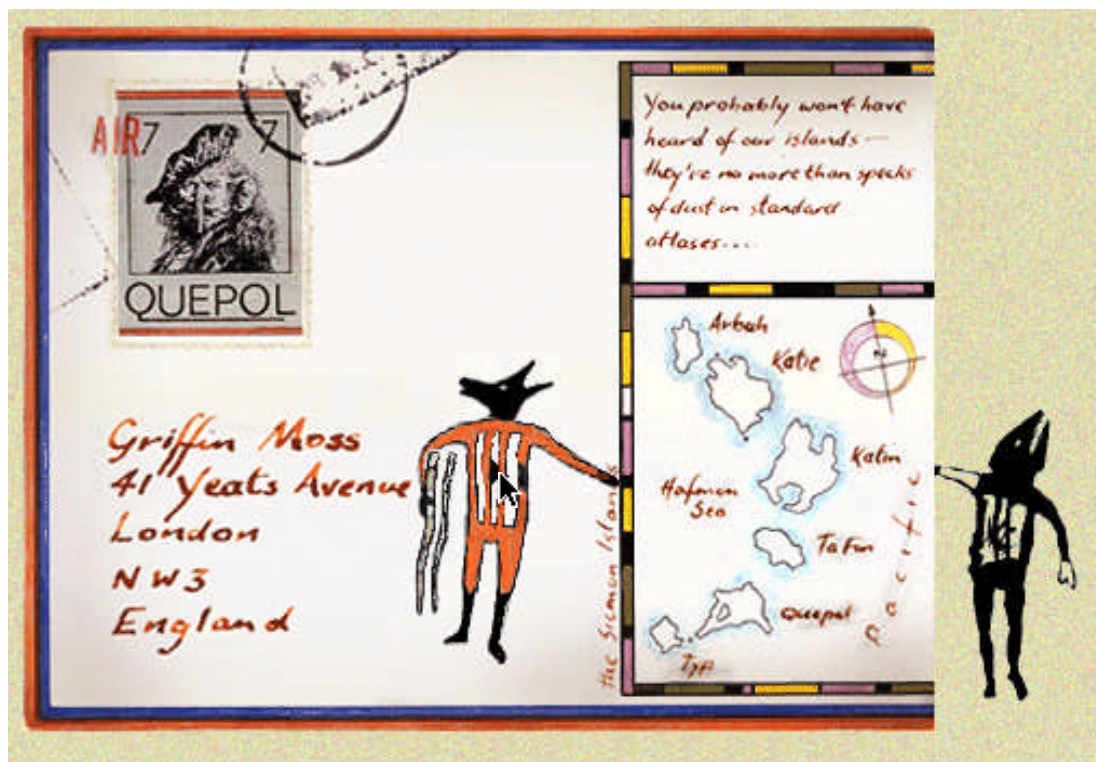 AIR
7 7
QUEPOL
Griffin Moss
41 Yeats Avenue
London
NW3
England
You probably won't have
heard of our islands —
they're no more than specks
of dust in standard
atlases....
Arbah
Katie
Katin
Hafmon
Sea
Ta Fin
Quepol
Typ
Pacific
N
the Sicmon Islands